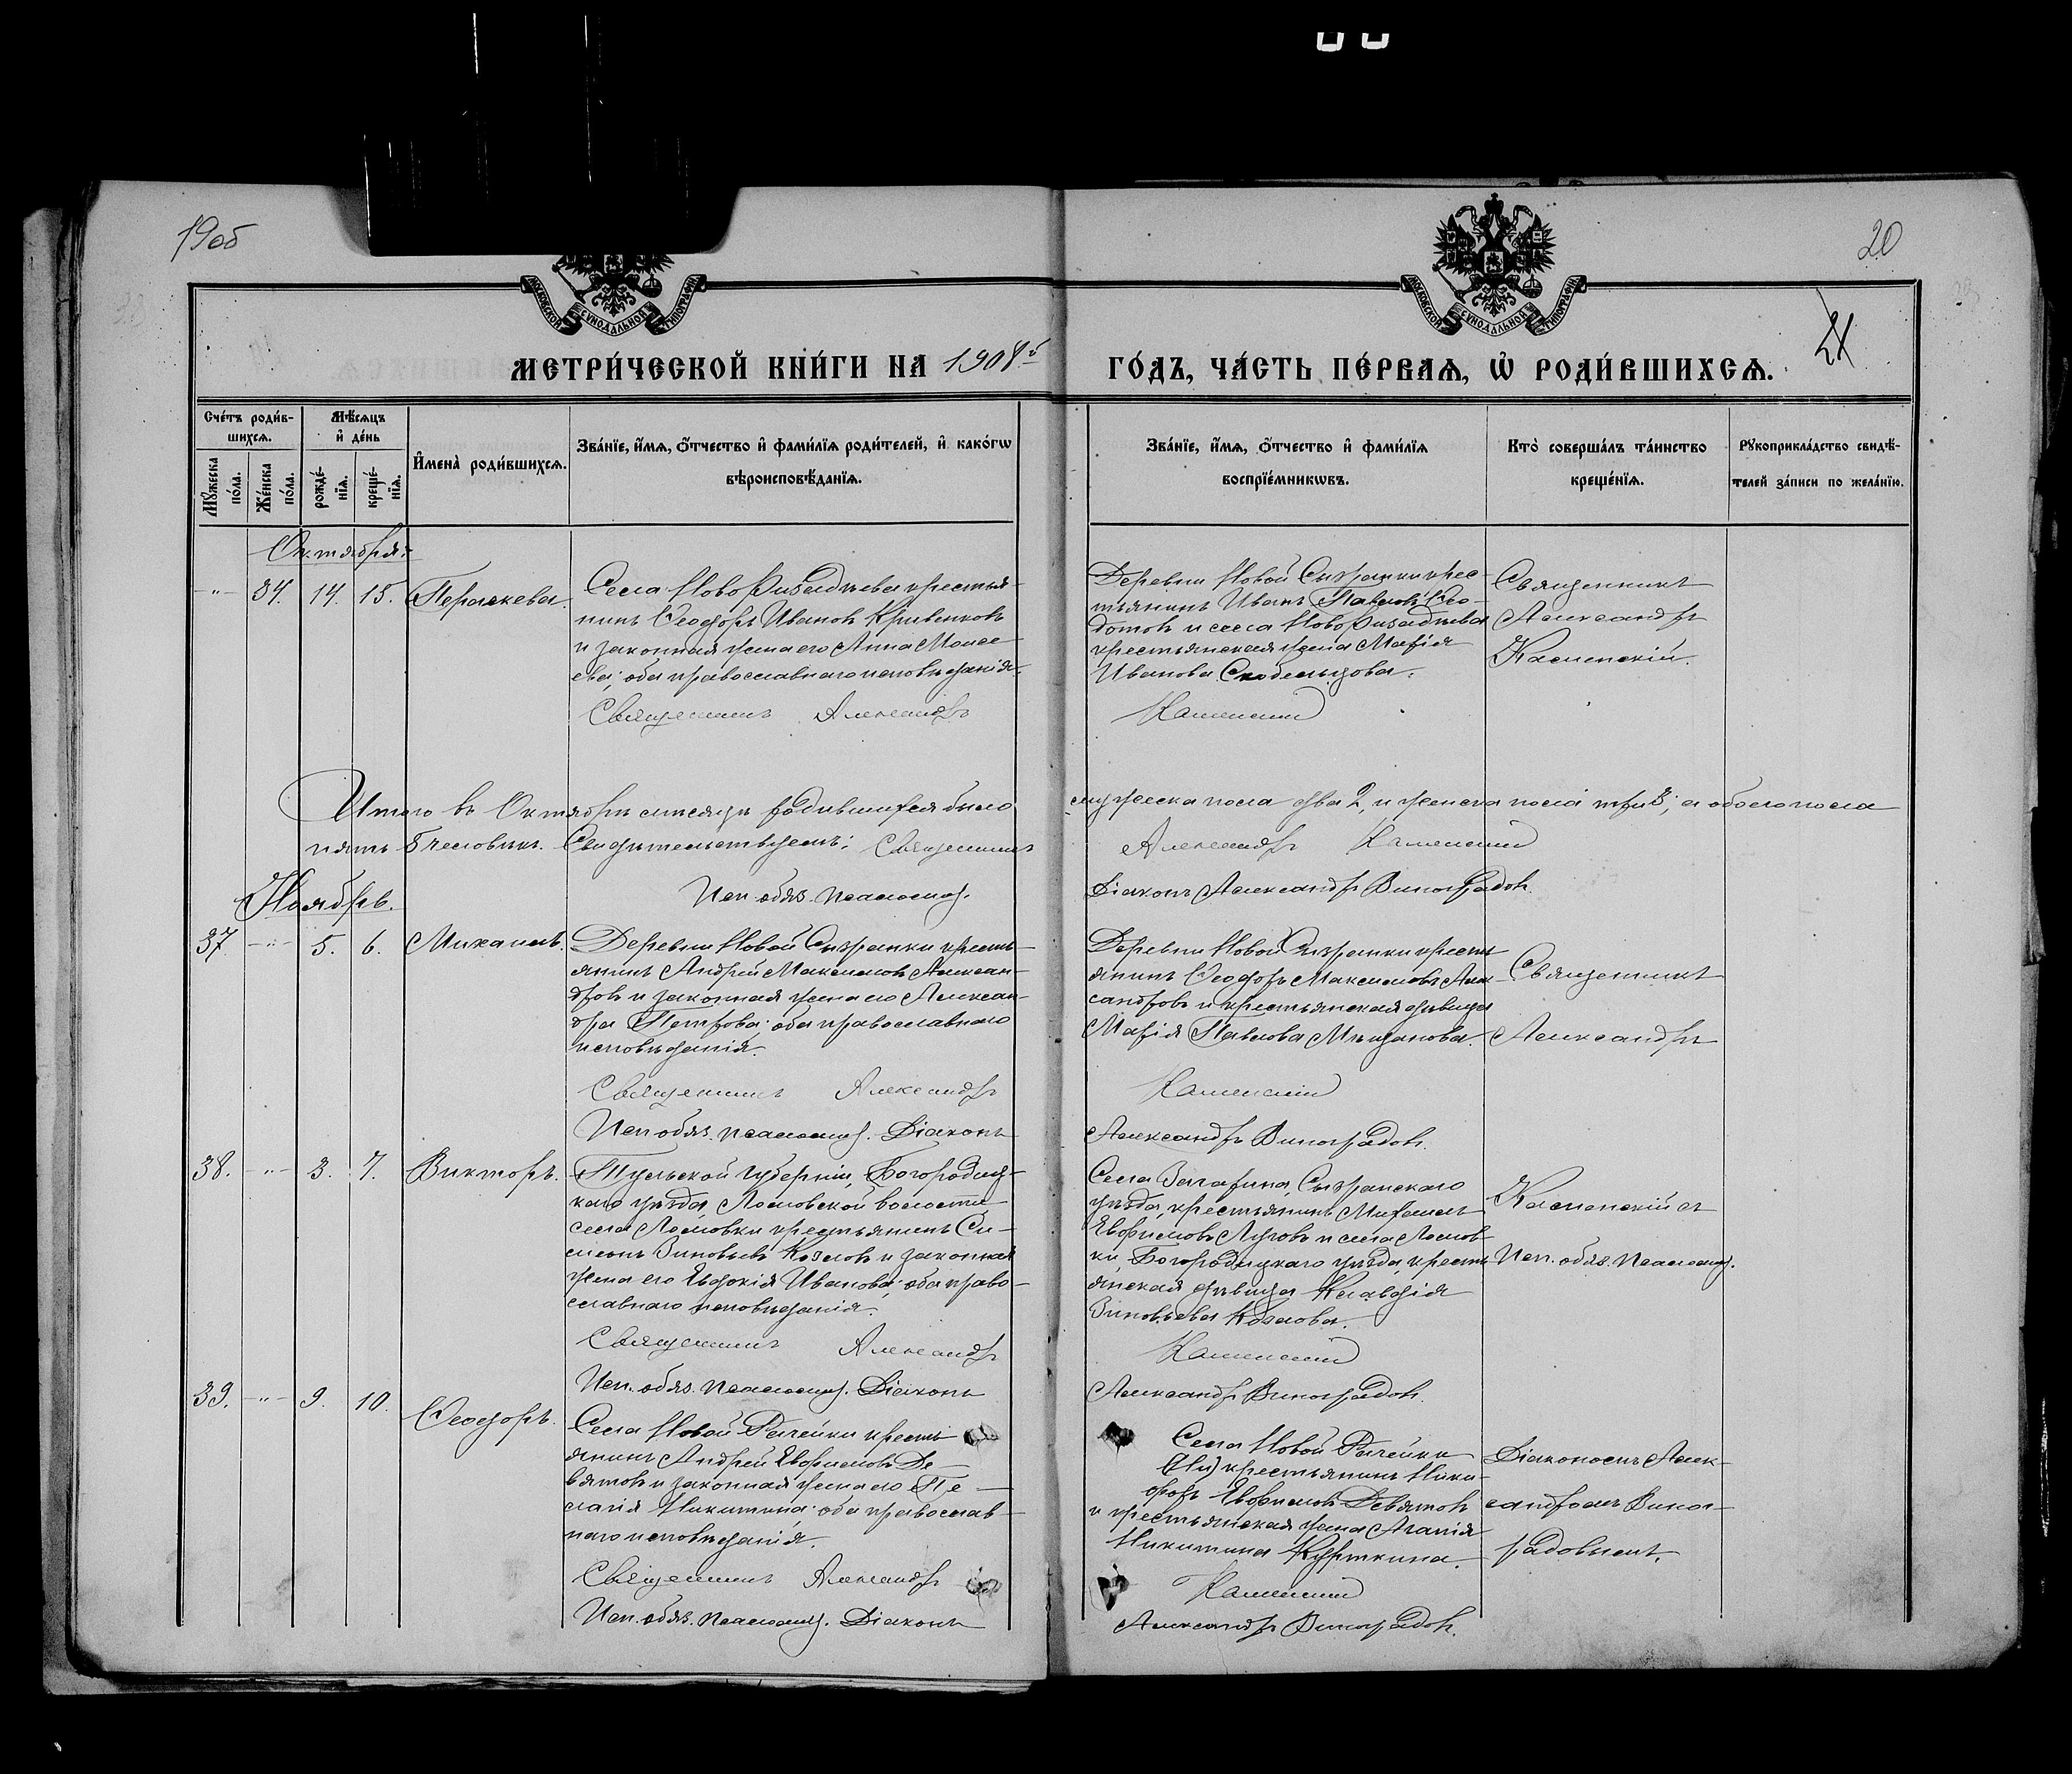 19об
20
21
МОСКОВСКОЙ СУНОДАЛЬНОЙ ТИПОГРАФІИ
МОСКОВСКОЙ СУНОДАЛЬНОЙ ТИПОГРАФІИ
МЕТРИ́ЧЕСКОЙ КНИ́ГИ НА 1908й ГО́ДЪ, ЧА́СТЬ ПЕ́РВАЯ, Ѡ҆ РОДИ́ВШИХСЯ.
Сче́тъ роди́в-
шихся.
Мꙋ́жеска по́ла.
Же́нска по́ла.
Мѣ́сяцъ
и҆ де́нь
рожде́-
нїя.
креще́-
нїя.
И҆мена̀ роди́вшихся.
Зва́нїе, и҆́мя, ѻ҆́тчество и҆ фами́лїя роди́телей, и҆ како́гѡ
вѣроисповѣ́данїя.
Зва́нїе, и҆́мя, ѻ҆́тчество и҆ фами́лїя
воспрїе́мникѡвъ.
Кто̀ соверша́лъ та́инство
креще́нїя.
Рꙋкоприкла́дство свидѣ́-
телей за́писи по жела́нїю.
Октября:
-"- 34. 14. 15. Параскева.
Села Ново Ризадѣева крестья-
нинъ Ѳеодоръ Ивановъ Кривенковъ
и законная жена его Анна Моисе-
ева; оба православнаго исповѣданія.
Священникъ Александръ
Деревни Новой Сызранки крес-
тьянинъ Иванъ Павловъ Ѳео-
дотовъ и села Ново Ризадѣева
крестьянская жена Марія
Иванова Скобельцова.
Каменскій
Священникъ
Александръ
Каменскій.
Итого въ Октябрѣ мѣсяцѣ родившихся было
мужеска пола два 2, и женска пола три 3, а обоего пола
пять 5 человѣкъ. Свидѣтельствуемъ: Священникъ
Александръ Каменскій
Исп. обяз. псаломщ.
Діаконъ Александръ Виноградовъ.
Ноябрь.
37. -"- 5. 6. Михаилъ.
Деревни Новой Сызранки кресть-
янинъ Андрей Максимовъ Алексан-
дровъ и законная жена его Алексан-
дра Петрова; оба православнаго
исповѣданія.
Священникъ Александръ
Исп. обяз. псаломщ. Діаконъ
Деревни Новой Сызранки кресть
янинъ Ѳеодоръ Максимовъ Алек-
сандровъ и крестьянская дѣвица
Марія Павлова
Каменскій
Александръ Виноградовъ.
Священникъ
Александръ
38. -"- 3. 7. Викторъ.
Тульской губерніи, Богородиц-
каго уѣзда, Ломовской волости
села Ломовки крестьянинъ Си-
меонъ Зиновьевъ Козловъ и законная
жена его Евдокія Иванова; оба право-
славнаго исповѣданія.
Священникъ Александръ
Исп. обяз. псаломщ. Діаконъ
Села Загарина, Сызранскаго
уѣзда, крестьянинъ Михаилъ
Евфимовъ Луговъ и села Ломов
ки, Богородицкаго уѣзда, кресть
янская дѣвица Клавдія
Зиновьева Козлова.
Каменскій
Александръ Виноградовъ.
Каменскій съ
Исп. обяз. псаломщ.
39. -"- 9. 10. Ѳеодоръ.
Села Новой Рачейки кресть
янинъ Андрей Евфимовъ Де-
вятовъ и законная жена его Пе-
лагія Никитина; оба православ-
наго исповѣданія.
Священникъ Александръ
Исп. обяз. псаломщ. Діаконъ
Села Новой Рачейки
крестьянинъ Ники-
форъ Евфимовъ Девятовъ
и крестьянская жена Агапія
Никитина Курткина.
Каменскій
Александръ Виноградовъ.
Діакономъ Алек-
сандромъ Виног-
радовымъ.